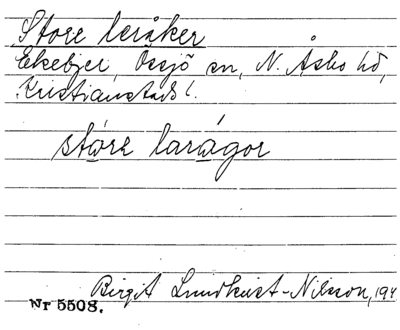 Store leråker
Ekebjer, Össjö sn, N. Åsbo hd,
Kristianstads l.
støre laragor
Birgit Lundkvist-Nilsson, 194
Nr 5508.